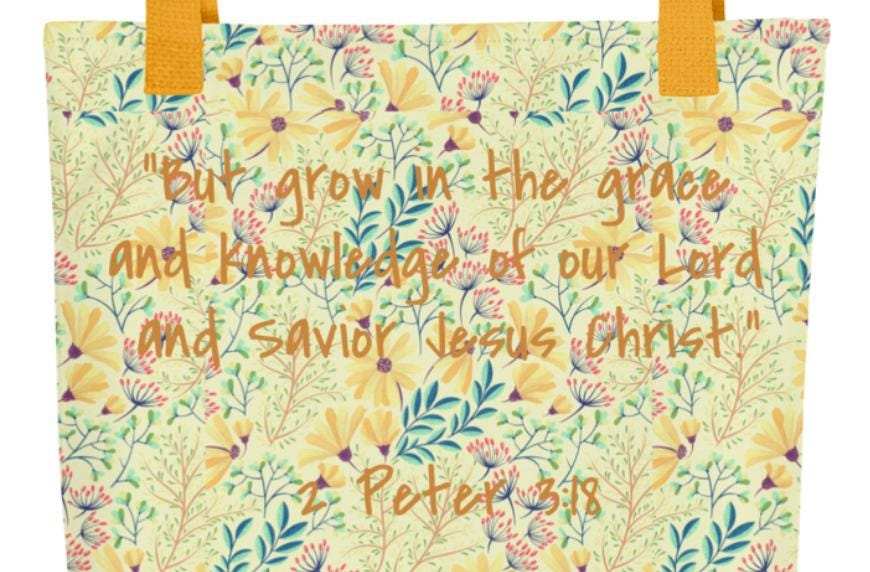 "But grow in the grace
and knowledge of our Lord
and Savior Jesus Christ."
2 Peter 3:18